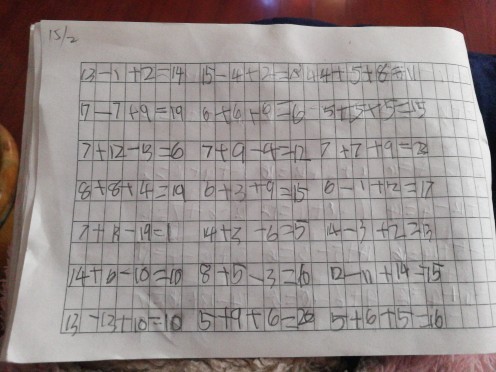 15/2
13-1+2=14 15-4+2=13 4+5+8=
7-7+9=19 6+6+6=6 5+5+5=15
7+12-13=6 7+9-4=12 7+7+9=
8+8+4=19 6+3+9=15 6-1+12=17
-19=1 -6=5 14-3+2=13
14+6-10=10 8+5-3=10 12-11+14=15
13-13+10=10 5+9+6=20 5+6+5=16